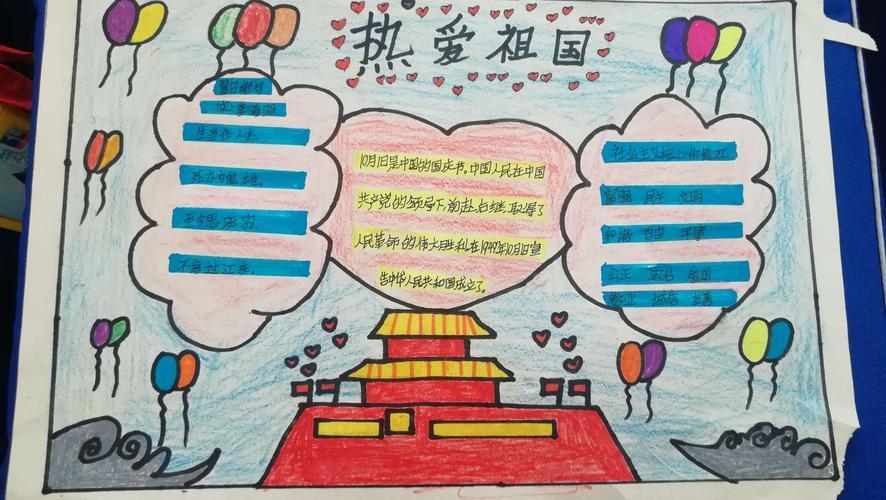 热爱祖国
夏日绝句
宋 李清照
生当作人杰,
死亦为鬼雄。
至今思项羽,
不肯过江东。
10月1日是中国的国庆节。中国人民在中国
共产党的领导下,前赴后继,取得了
人民革命的伟大胜利在1949年10月1日宣
告中华人民共和国成立了。
社会主义核心价值观
富强 民主 文明
和谐 自由 平等
公正 法治 爱国
敬业 诚信 友善